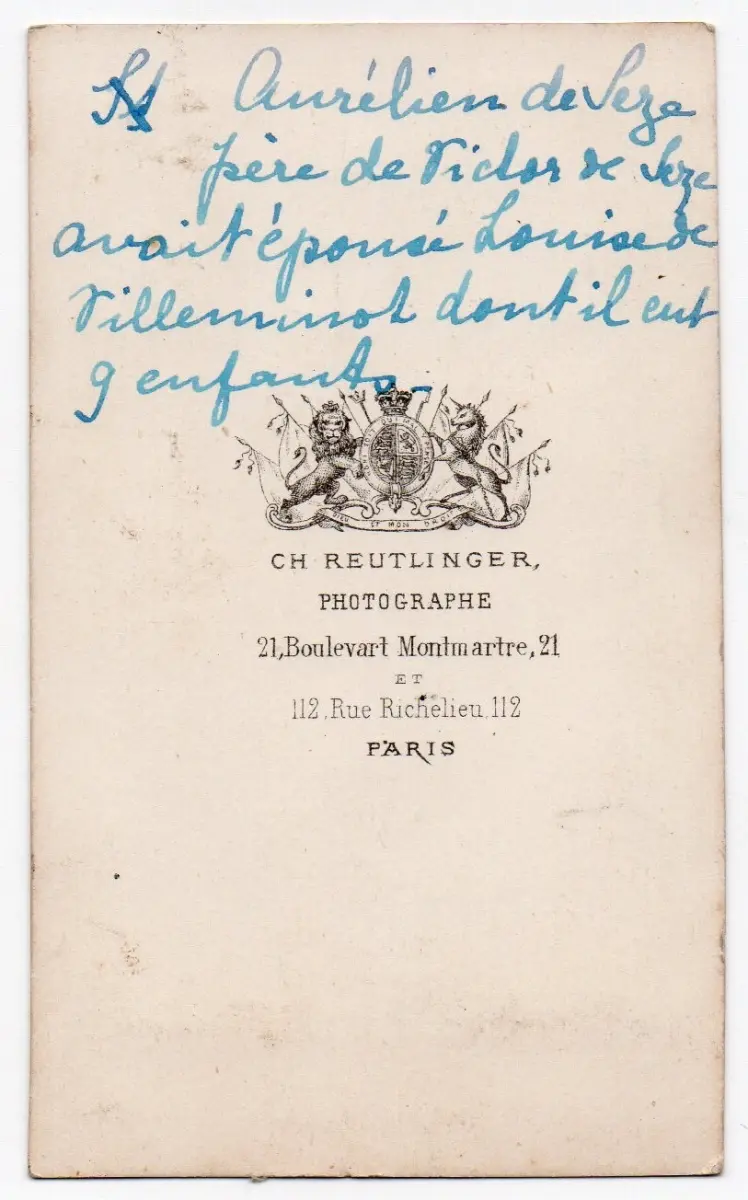 Aurélien de Seze
père de Victor de Seze
avait épousé Louise de
Villeminot dont il eut
9 enfants_
DIEU ET MON DROIT
CH REUTLINGER,
PHOTOGRAPHE
21, Boulevart Montmartre, 21
ET
112, Rue Richelieu, 112
PARIS